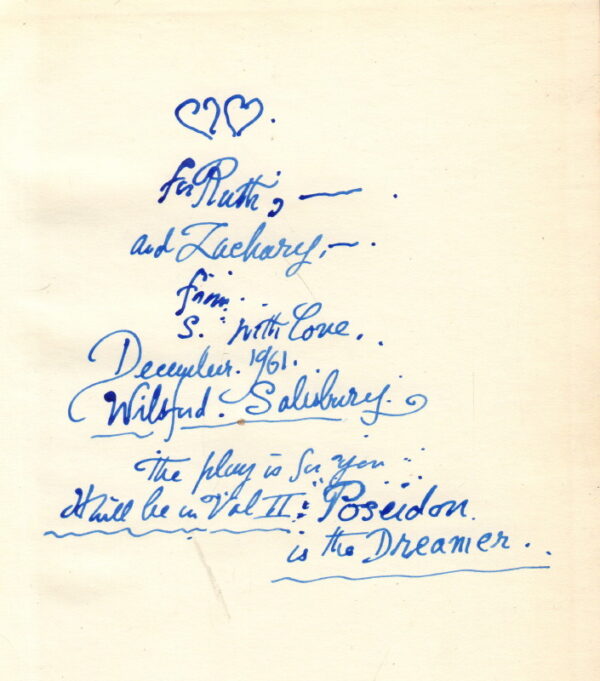 for Ruth, —.
and Zachary, —.
from.
S. with Love.
December. 1961.
Wilsford. Salisbury.
The play is for you
It will be in Vol II: "Poseidon
is the Dreamer.